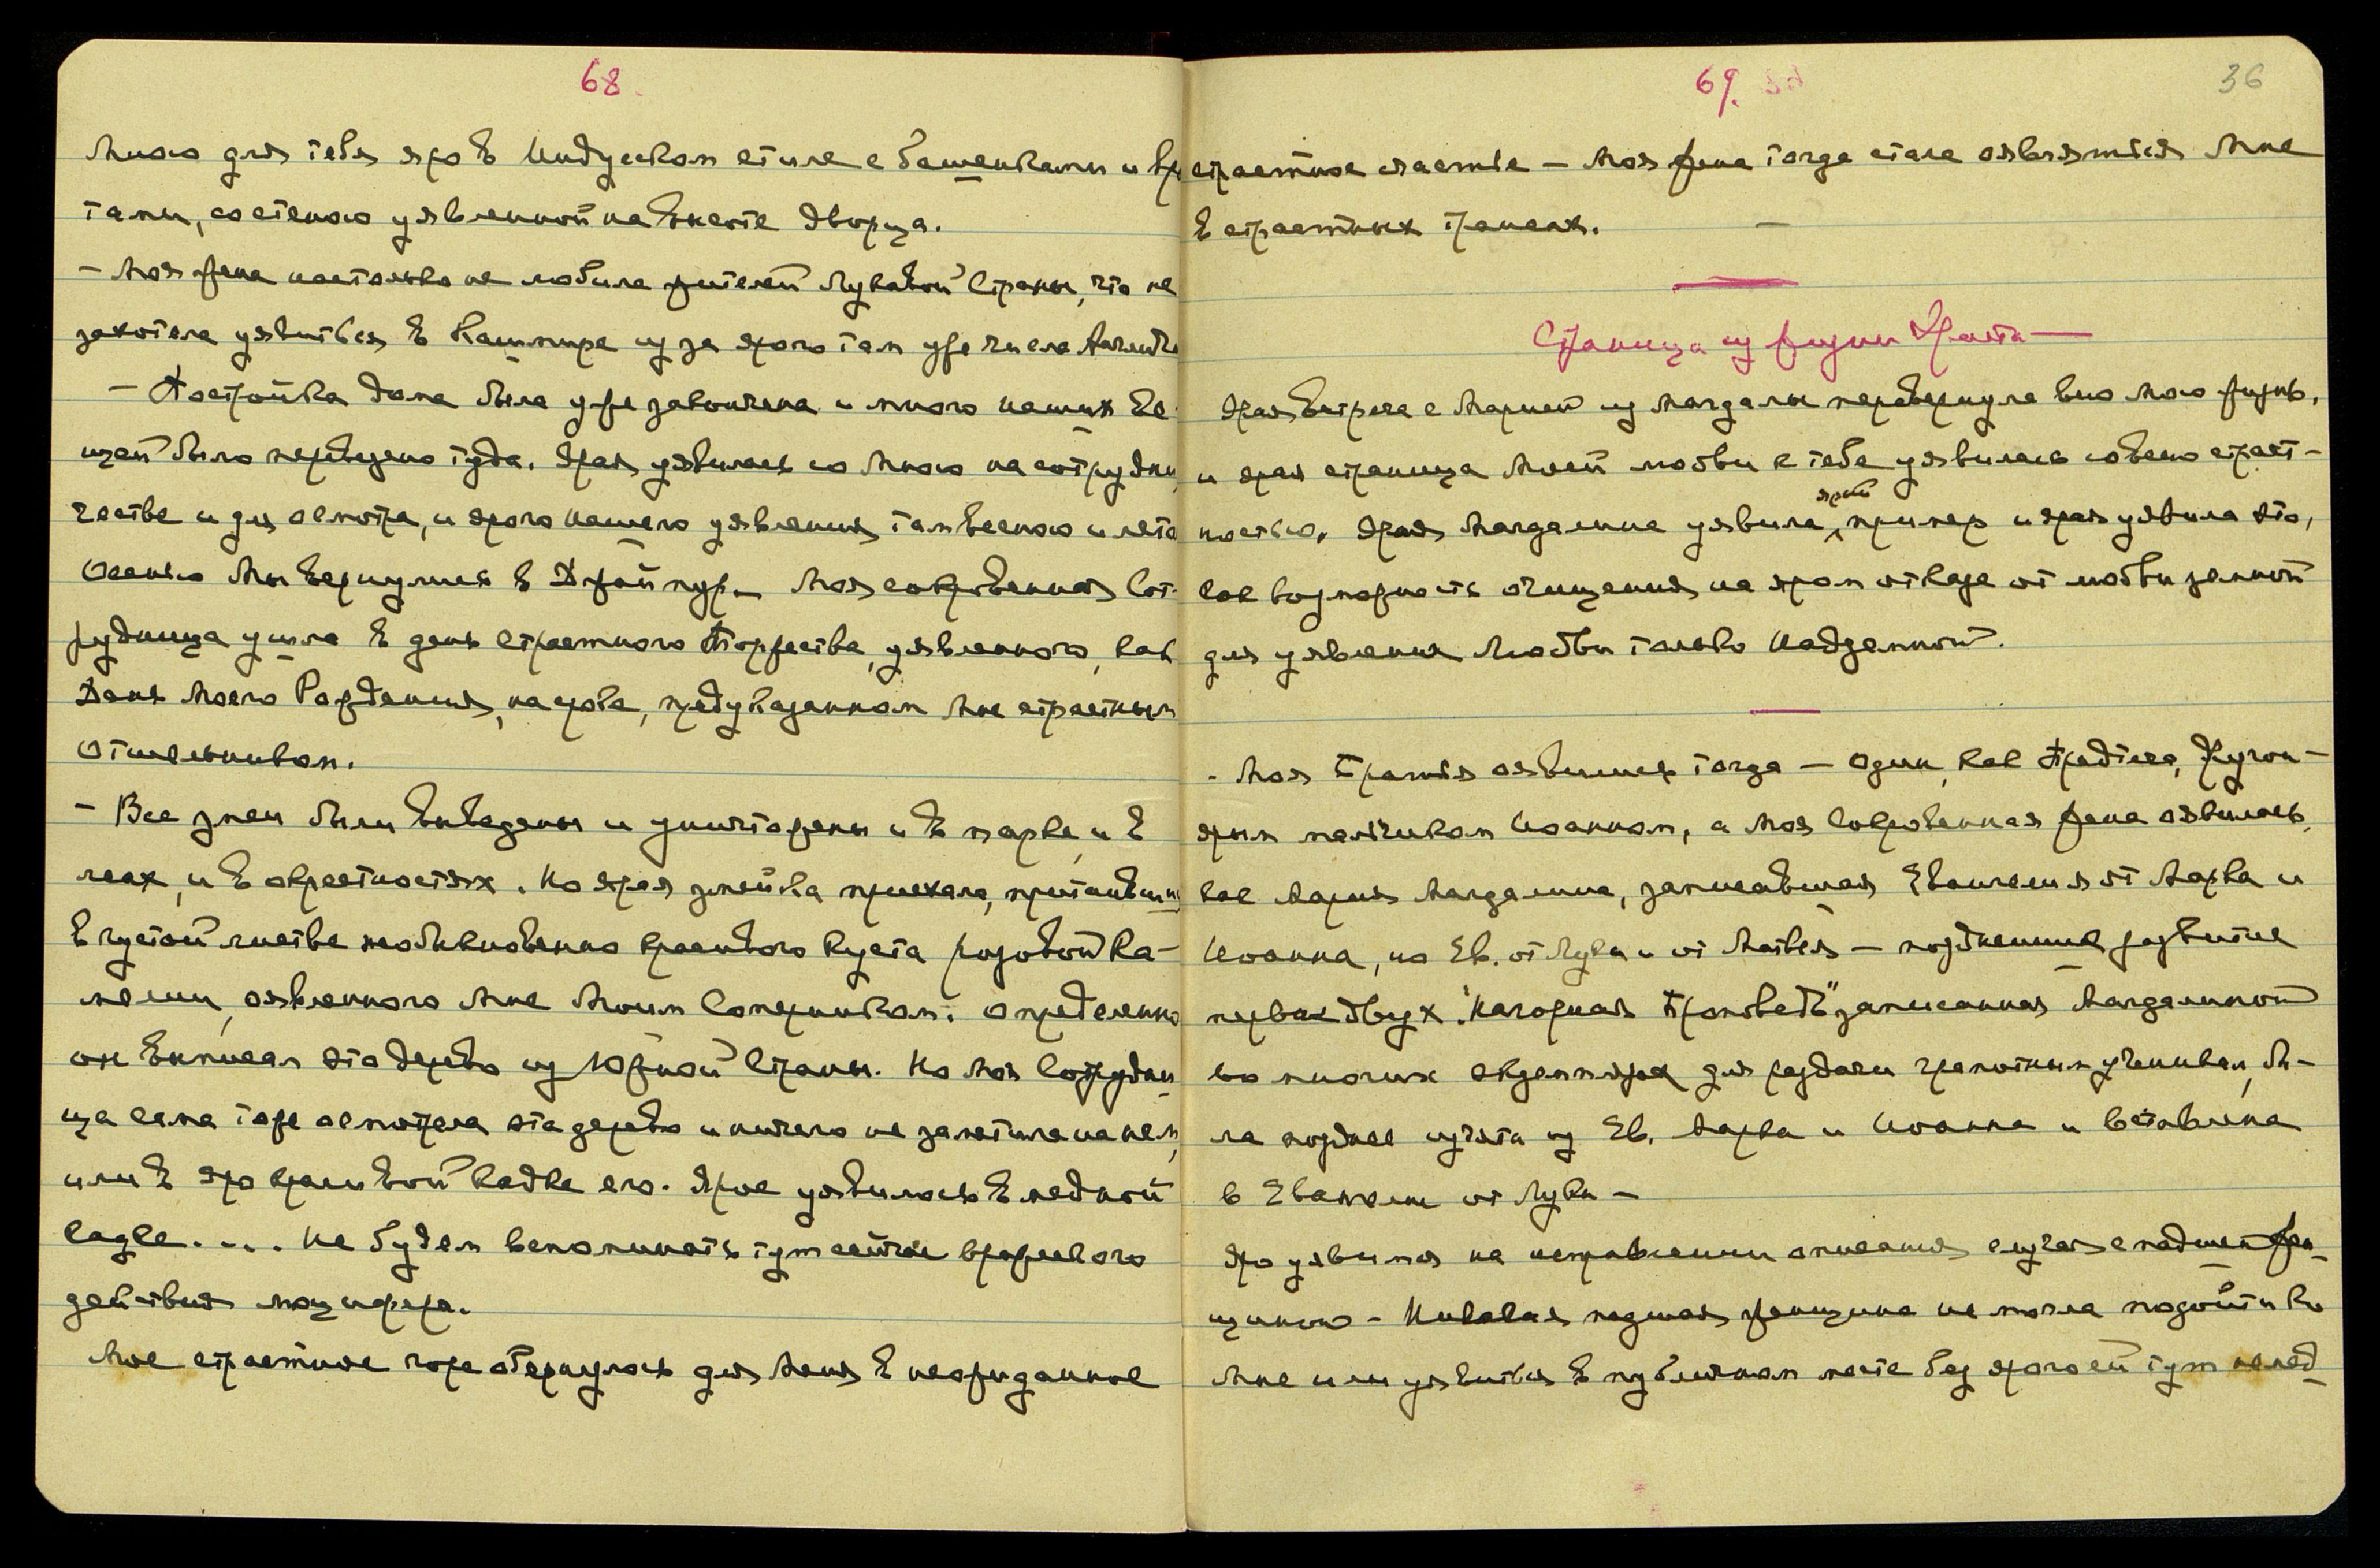 68.
Мною для тебя яро в Индусском стиле с башенками и вра
тами, со стеною уявленной на высоте дворца.
— Моя жена настолько не любила жителей Лукавой Страны, что не
захотела уявиться в Кашмире из за ярого там уже числа Англича
— Постройка дома была уже закончена и много наших ве-
щей было перевезено туда. Ярая уявилась со Мною на сотрудни
честве и для осмотра, и ярого нашего уявления там весною и лето
Осенью Мы вернулись в Джайпур. Моя сокровенная Сот-
рудница ушла в день страстного Торжества, уявленного, как
День Моего Рождения, на срок, предуказанном Мне страстным
Отшельником.
— Все змеи были выведены и уничтожены и в парке, и в
лесах, и в окрестностях. Но ярая змейка приехала, притаившись
в густой листве необыкновенно красивого куста розовой ка-
мелии, оявленного Мне Моим Соперником; определенно
он выписал это дерево из Южной Страны. Но Моя Сотрудни
ца сама тоже осмотрела это дерево и ничего не заметила на нем,
или в яро красивой кадке его. Ярое уявилось в медной
кадке.... Не будем вспоминать тут сейчас вражеского
действия люцифера.
Мое страстное горе обернулось для Меня в неожиданное
69. 36
страстное счастье — Моя жена тогда стала оявляться Мне
в страстных траншах. —
Страница из жизни Христа —
Ярая встреча с Марией из Магдалы перевернула всю Мою жизнь,
и ярая страница Моей любви к тебе уявилась со всею страст-
ностью. Ярая Магдалина уявила ярый пример и ярая уявила это,
как возможность очищения на яром отказе от любви земной
для уявления Любви только Надземной.
- Моя Братья оявились тогда — один, как Предтеча, Другой —
ярым мальчиком Иоанном, а Моя Сокровенная жена оявилась,
как Мария Магдалина, записавшая Евангелия от Марка и
Иоанна, но Ев. от Луки и от Матвея — позднейшие развития
первых двух. "Нагорная Проповедь" записанная Магдалиной
во многих экземплярах для раздачи грамотным ученикам, бы-
ла позднее изъята из Ев. Марка и Иоанна и вставлена
в Евангелие от Луки —
Яро уявимся на исправлении описания случая с падшей жен
щиною — Никакая падшая женщина не могла подойти ко
Мне или уявиться в публичном месте без ярого ей тут